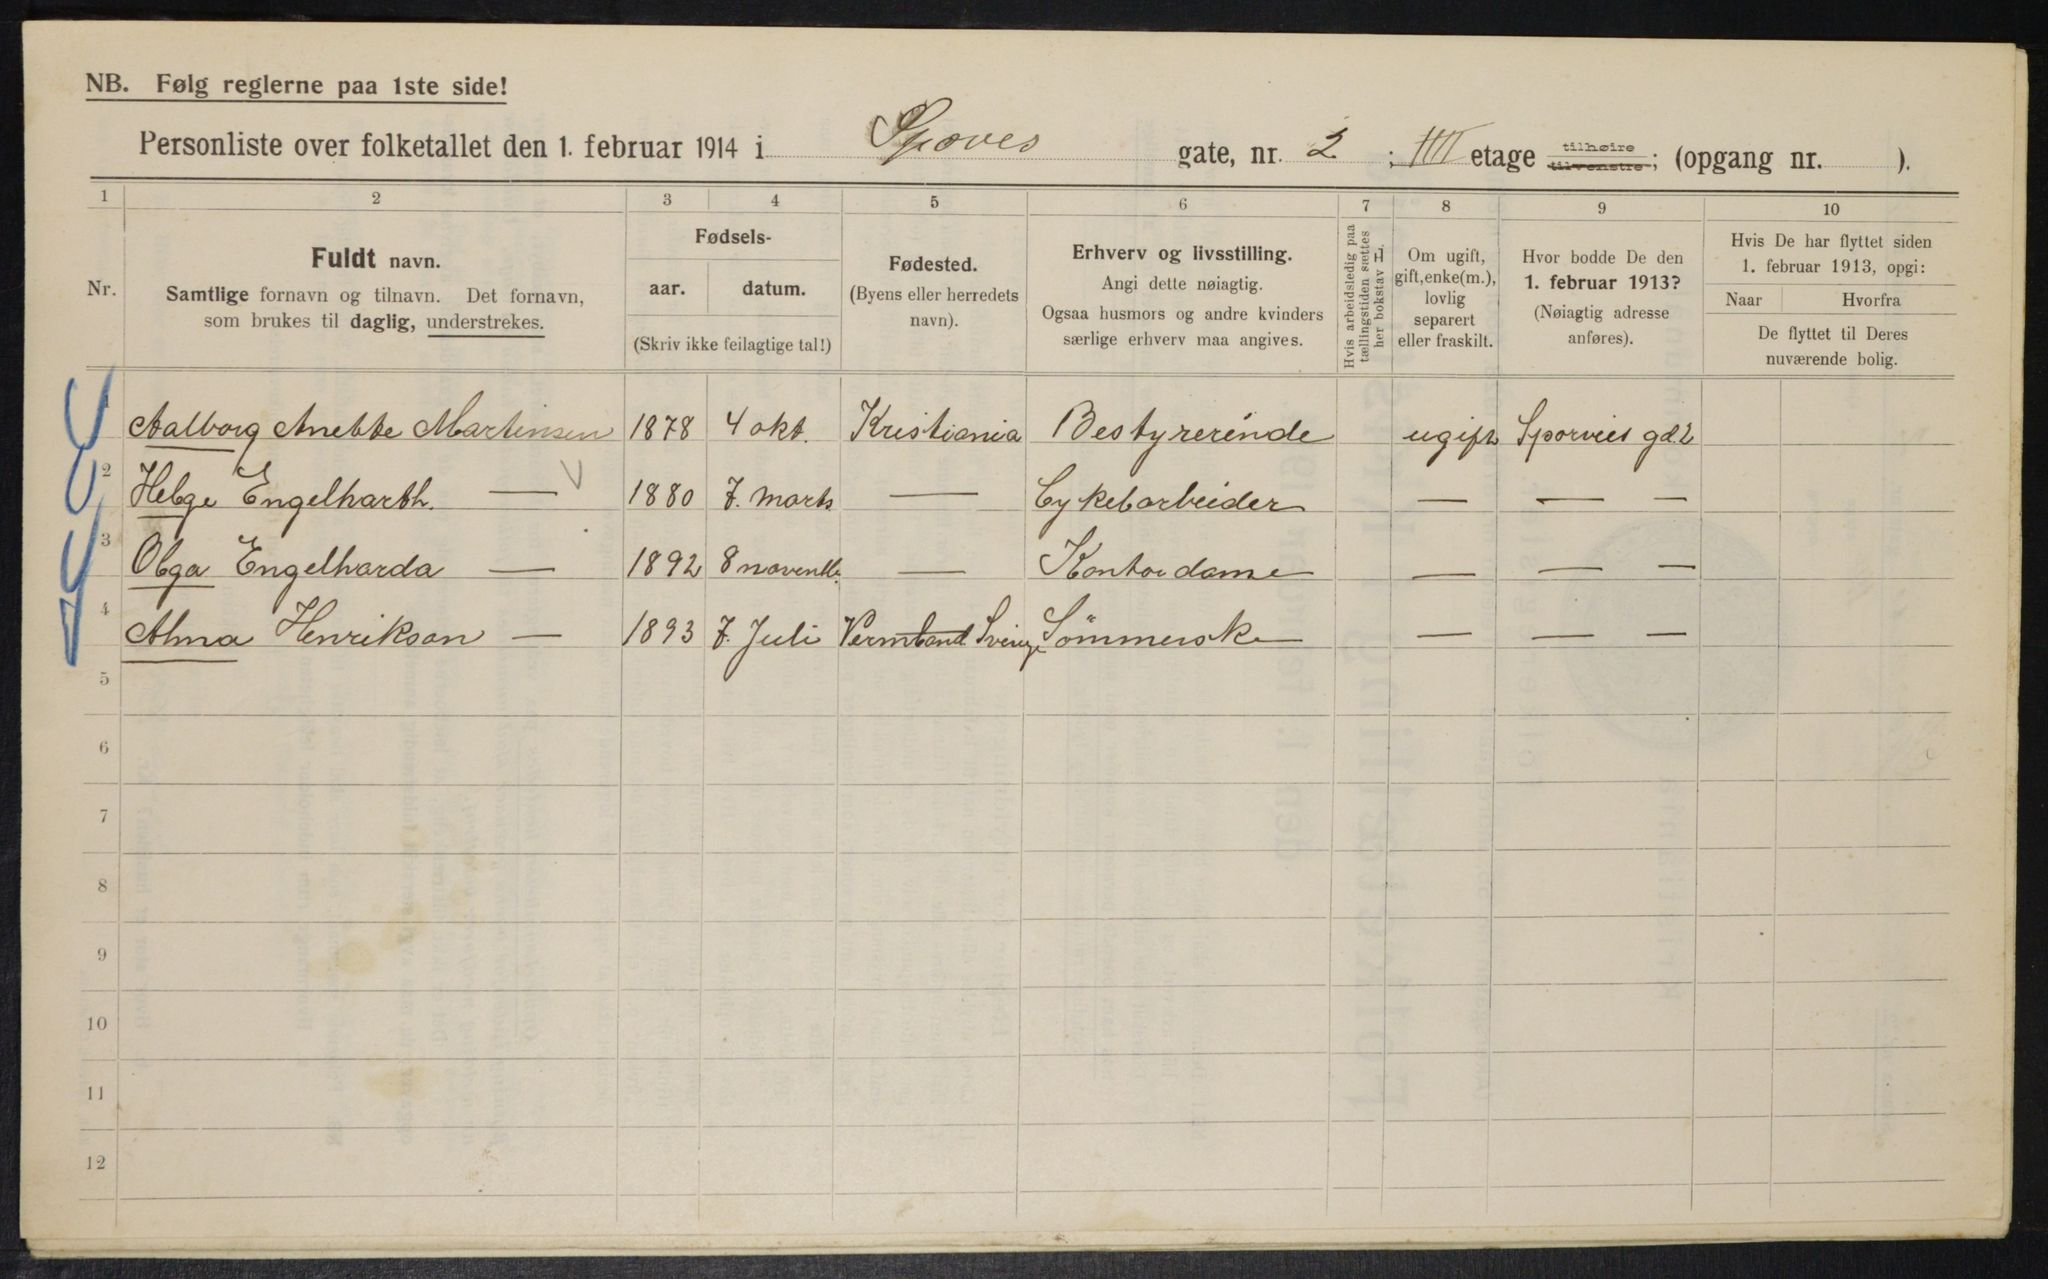 NB. Følg reglerne paa 1ste side!
Personliste over folketallet den 1. februar 1914 i Sporves gate, nr. 2 ; IIII etage tilhøire tilvenstre; (opgang nr. ).
1 2 3 4 5 6 7 8 9 10
Nr.
Fuldt navn.
Samtlige fornavn og tilnavn. Det fornavn,
som brukes til daglig, understrekes.
Fødsels-
aar. datum.
(Skriv ikke feilagtige tal!)
Fødested.
(Byens eller herredets
navn).
Erhverv og livsstilling.
Angi dette nøiagtig.
Ogsaa husmors og andre kvinders
særlige erhverv maa angives.
Hvis arbeidsledig paa
tællingstiden sættes
her bokstav L.
Om ugift,
gift, enke(m.),
lovlig
separert
eller fraskilt.
Hvor bodde De den
1. februar 1913?
(Nøiagtig adresse
anføres).
Hvis De har flyttet siden
1. februar 1913, opgi:
Naar Hvorfra
De flyttet til Deres
nuværende bolig.
1 Aalborg Anette Martinsen 1878 4 okt. Kristiania Bestyrerinde ugift Sporveis gd. 2
2 Helge Engelharth. — 1880 7. marts — Cykelarbeider — — —
3 Olga Engelharda — 1892 8 novemb. — Kontordame — — —
4 Alma Henrikson — 1893 7. Juli Vermland. Sverige Sömmerske — — —
5
6
7
8
9
10
11
12